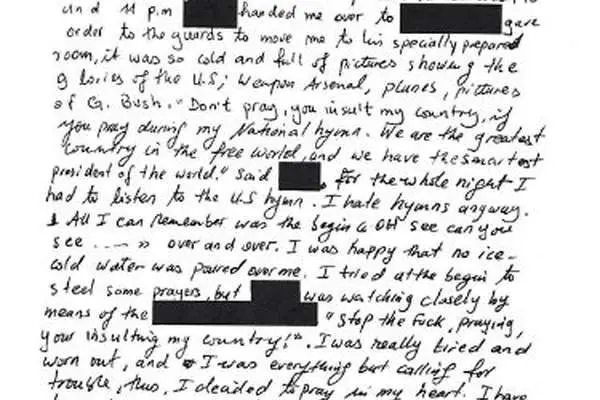 und 11 p.m handed me over to gave
order to the guards to move me to his specially prepared
room, it was so cold and full of pictures showing the
glories of the U.S; weapon Arsenal, planes, pictures
of G. Bush. "Don't pray, you insult my country, if
you pray during my National hymn. We are the greatest
country in the free world, and we have the smartest
president of the world." Said . for the whole night I
had to listen to the U.S hymn. I hate hymns anyway.
All I can remember was the begin Oh see can you
see ..... » over and over. I was happy that no ice-
cold water was poured over me. I tried at the begin to
steel some prayers, but was watching closely by
means of the "stop the fuck, praying,
your insulting my country!". I was really tired and
worn out, and I was everything but calling for
trouble, thus, I decided to pray in my heart. I have